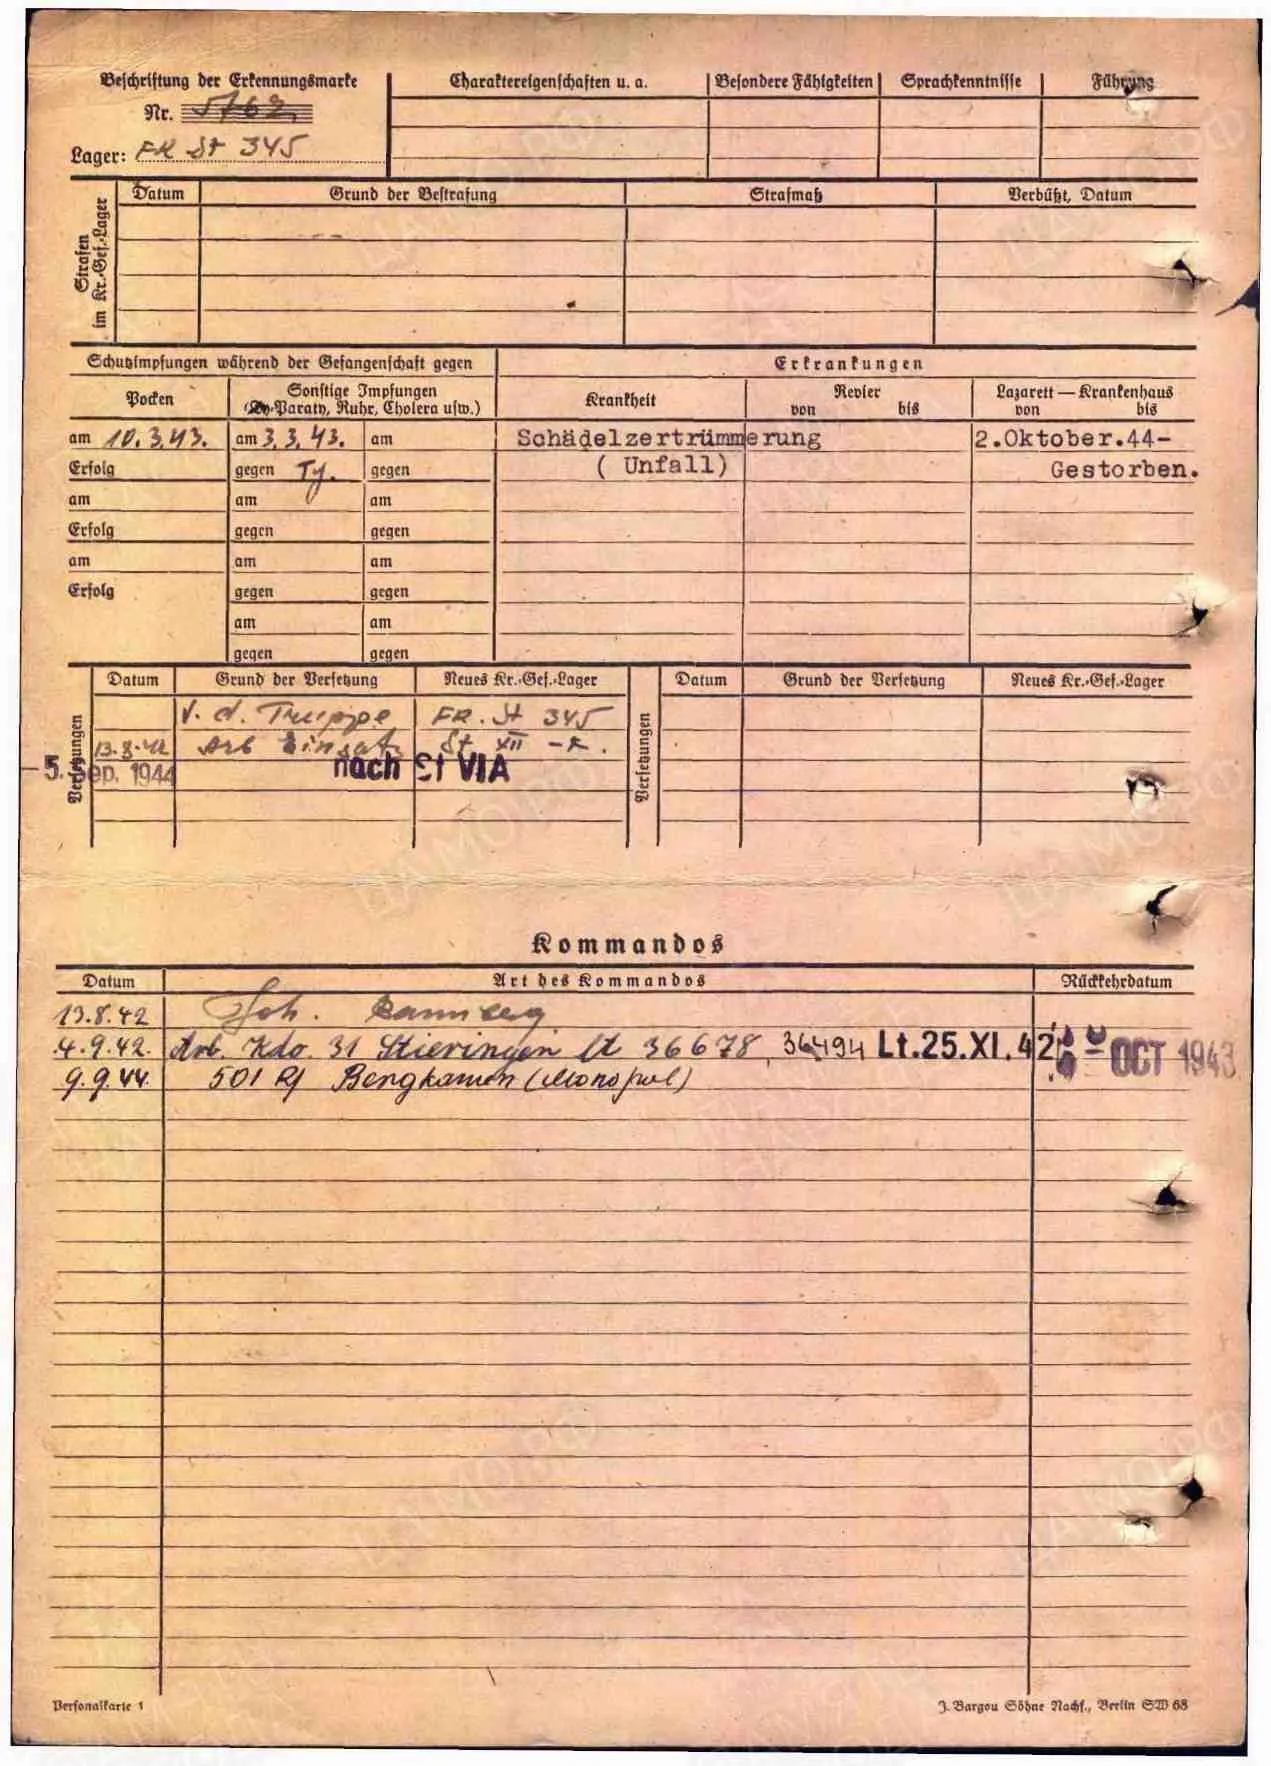 Beschriftung der Erkennungsmarke
Nr. 5762
Lager: FR St 345
Charaktereigenschaften u. a.
Besondere Fähigkeiten
Sprachkenntnisse
Führung
Strafen im Kr.-Gef.-Lager
Datum
Grund der Bestrafung
Strafmaß
Verbüßt, Datum
Schutzimpfungen während der Gefangenschaft gegen
Erkrankungen
Pocken
Sonstige Impfungen
Paraty, Ruhr, Cholera usw.)
Krankheit
Revier
von bis
Lazarett — Krankenhaus
von bis
am 10.3.43. am 3.3.43. am Schädelzertrümmerung 2.Oktober.44-
Erfolg gegen Ty. gegen ( Unfall) Gestorben.
am am am
Erfolg gegen gegen
am am am
Erfolg gegen gegen
am am
gegen gegen
Versetzungen
Datum Grund der Versetzung Neues Kr.-Gef.-Lager
V. d. Truppe FR. St 345
13.8.42 Arb Einsatz St XII -F.
5. Sep. 1944 nach St VIA
Versetzungen
Datum Grund der Versetzung Neues Kr.-Gef.-Lager
Kommandos
Datum Art des Kommandos Rückkehrdatum
13.8.42 Joh.
4.9.42. Arb. Kdo. 31 Stieringen lt 36678, 36494 Lt.25.XI.42 OCT 1943
9.9.44. 501 Bergkamen (Monopol)
Personalkarte 1
J. Bargou Söhne Nachf., Berlin SW 68
ЦАМО.РФ